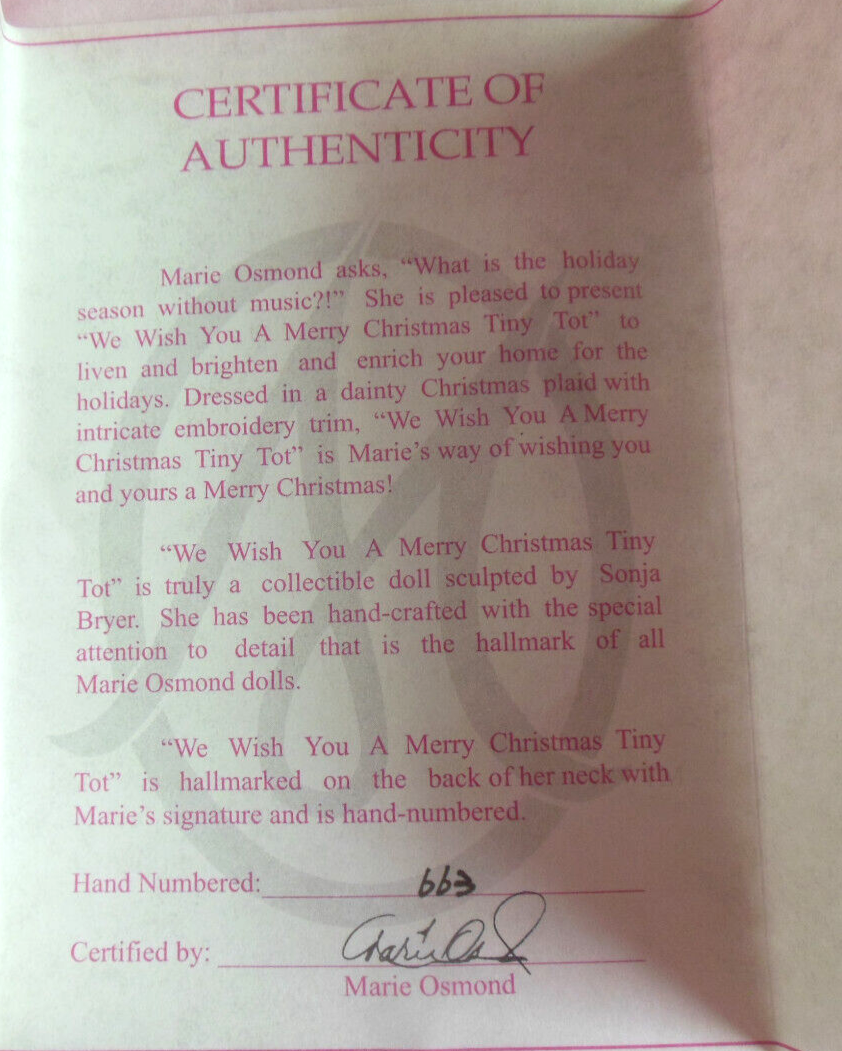 CERTIFICATE OF
AUTHENTICITY
Marie Osmond asks, “What is the holiday
season without music?!” She is pleased to present
“We Wish You A Merry Christmas Tiny Tot” to
liven and brighten and enrich your home for the
holidays. Dressed in a dainty Christmas plaid with
intricate embroidery trim, “We Wish You A Merry
Christmas Tiny Tot” is Marie’s way of wishing you
and yours a Merry Christmas!
“We Wish You A Merry Christmas Tiny
Tot” is truly a collectible doll sculpted by Sonja
Bryer. She has been hand-crafted with the special
attention to detail that is the hallmark of all
Marie Osmond dolls.
“We Wish You A Merry Christmas Tiny
Tot” is hallmarked on the back of her neck with
Marie’s signature and is hand-numbered.
Hand Numbered: 663
Certified by: Marie Os
Marie Osmond